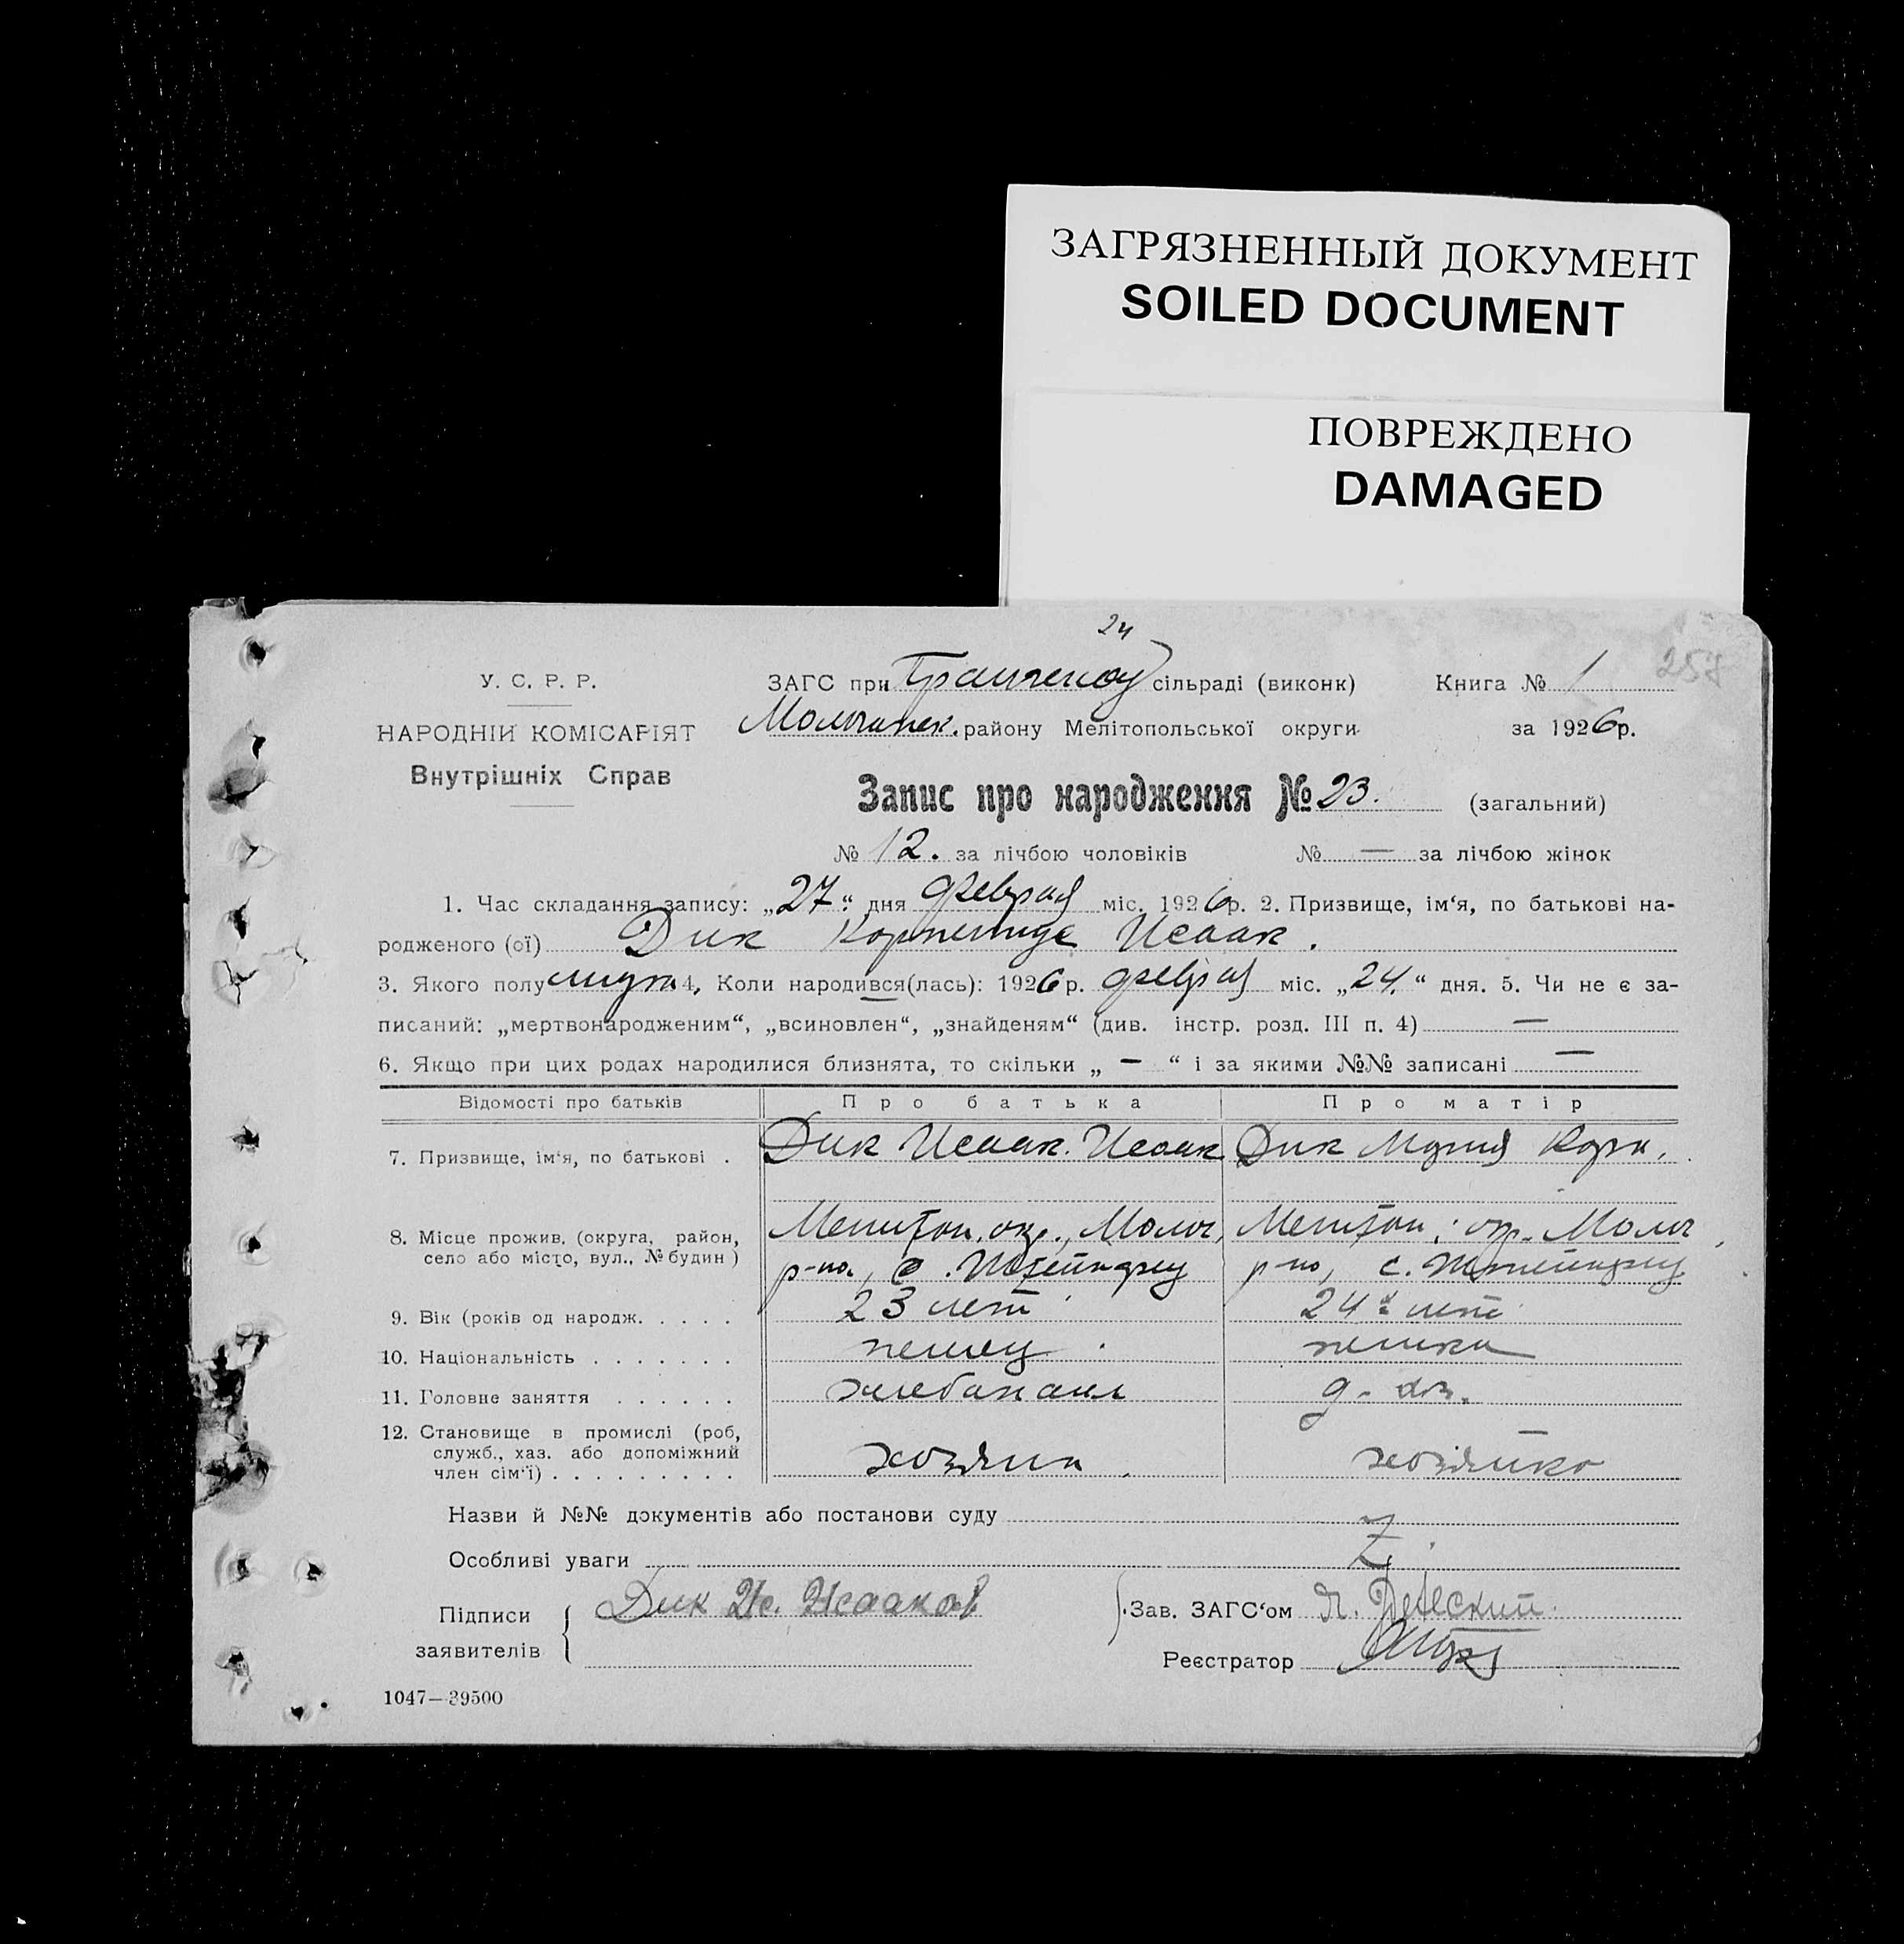 ЗАГРЯЗНЕННЫЙ ДОКУМЕНТ
SOILED DOCUMENT
ПОВРЕЖДЕНО
DAMAGED
24
257
У. С. Р. Р.
ЗАГС при сільраді (виконк)
Книга № 1
НАРОДНІЙ КОМІСАРІЯТ
Молочанск. району Мелітопольської округи
за 1926 р.
Внутрішніх Справ
Запис про народження № 23. (загальний)
№ 12. за лічбою чоловіків № — за лічбою жінок
1. Час складання запису: „27“ дня февраля міс. 1926 р. 2. Призвище, ім‘я, по батькові на-
родженого (ої) Дик Исаак.
3. Якого полу мужч 4, Коли народився(лась): 1926 р. февраля міс. „24.“ дня. 5. Чи не є за-
писаний: „мертвонародженим“, „всиновлен“, „знайденям“ (див. інстр. розд. III п. 4) —
6. Якщо при цих родах народилися близнята, то скільки „ — “ і за якими №№ записані —
Відомості про батьків Про батька Про матір
7. Призвище, ім‘я, по батькові . Дик Исаак. Исаак Дик Мария Корн.
8. Місце прожив. (округа, район, Мелитоп. окр., Молоч, Мелитоп. окр. Молоч,
село або місто, вул., № будин) р-на, с. Штейнфельд р-на, с. Штейнфельд
9. Вік (років од народж. . . . . 23 лет 24 лет
10. Національність . . . . . . . немец немка
11. Головне заняття . . . . . . хлебопаш д. хоз.
12. Становище в промислі (роб,
служб., хаз. або допоміжний
член сім‘ї) . . . . . . . . . хозяин хозяйка
Назви й №№ документів або постанови суду
Особливі уваги Z
Підписи
заявителів
Дик Ис. Исааков
Зав. ЗАГС‘ом
Реєстратор
1047—39500